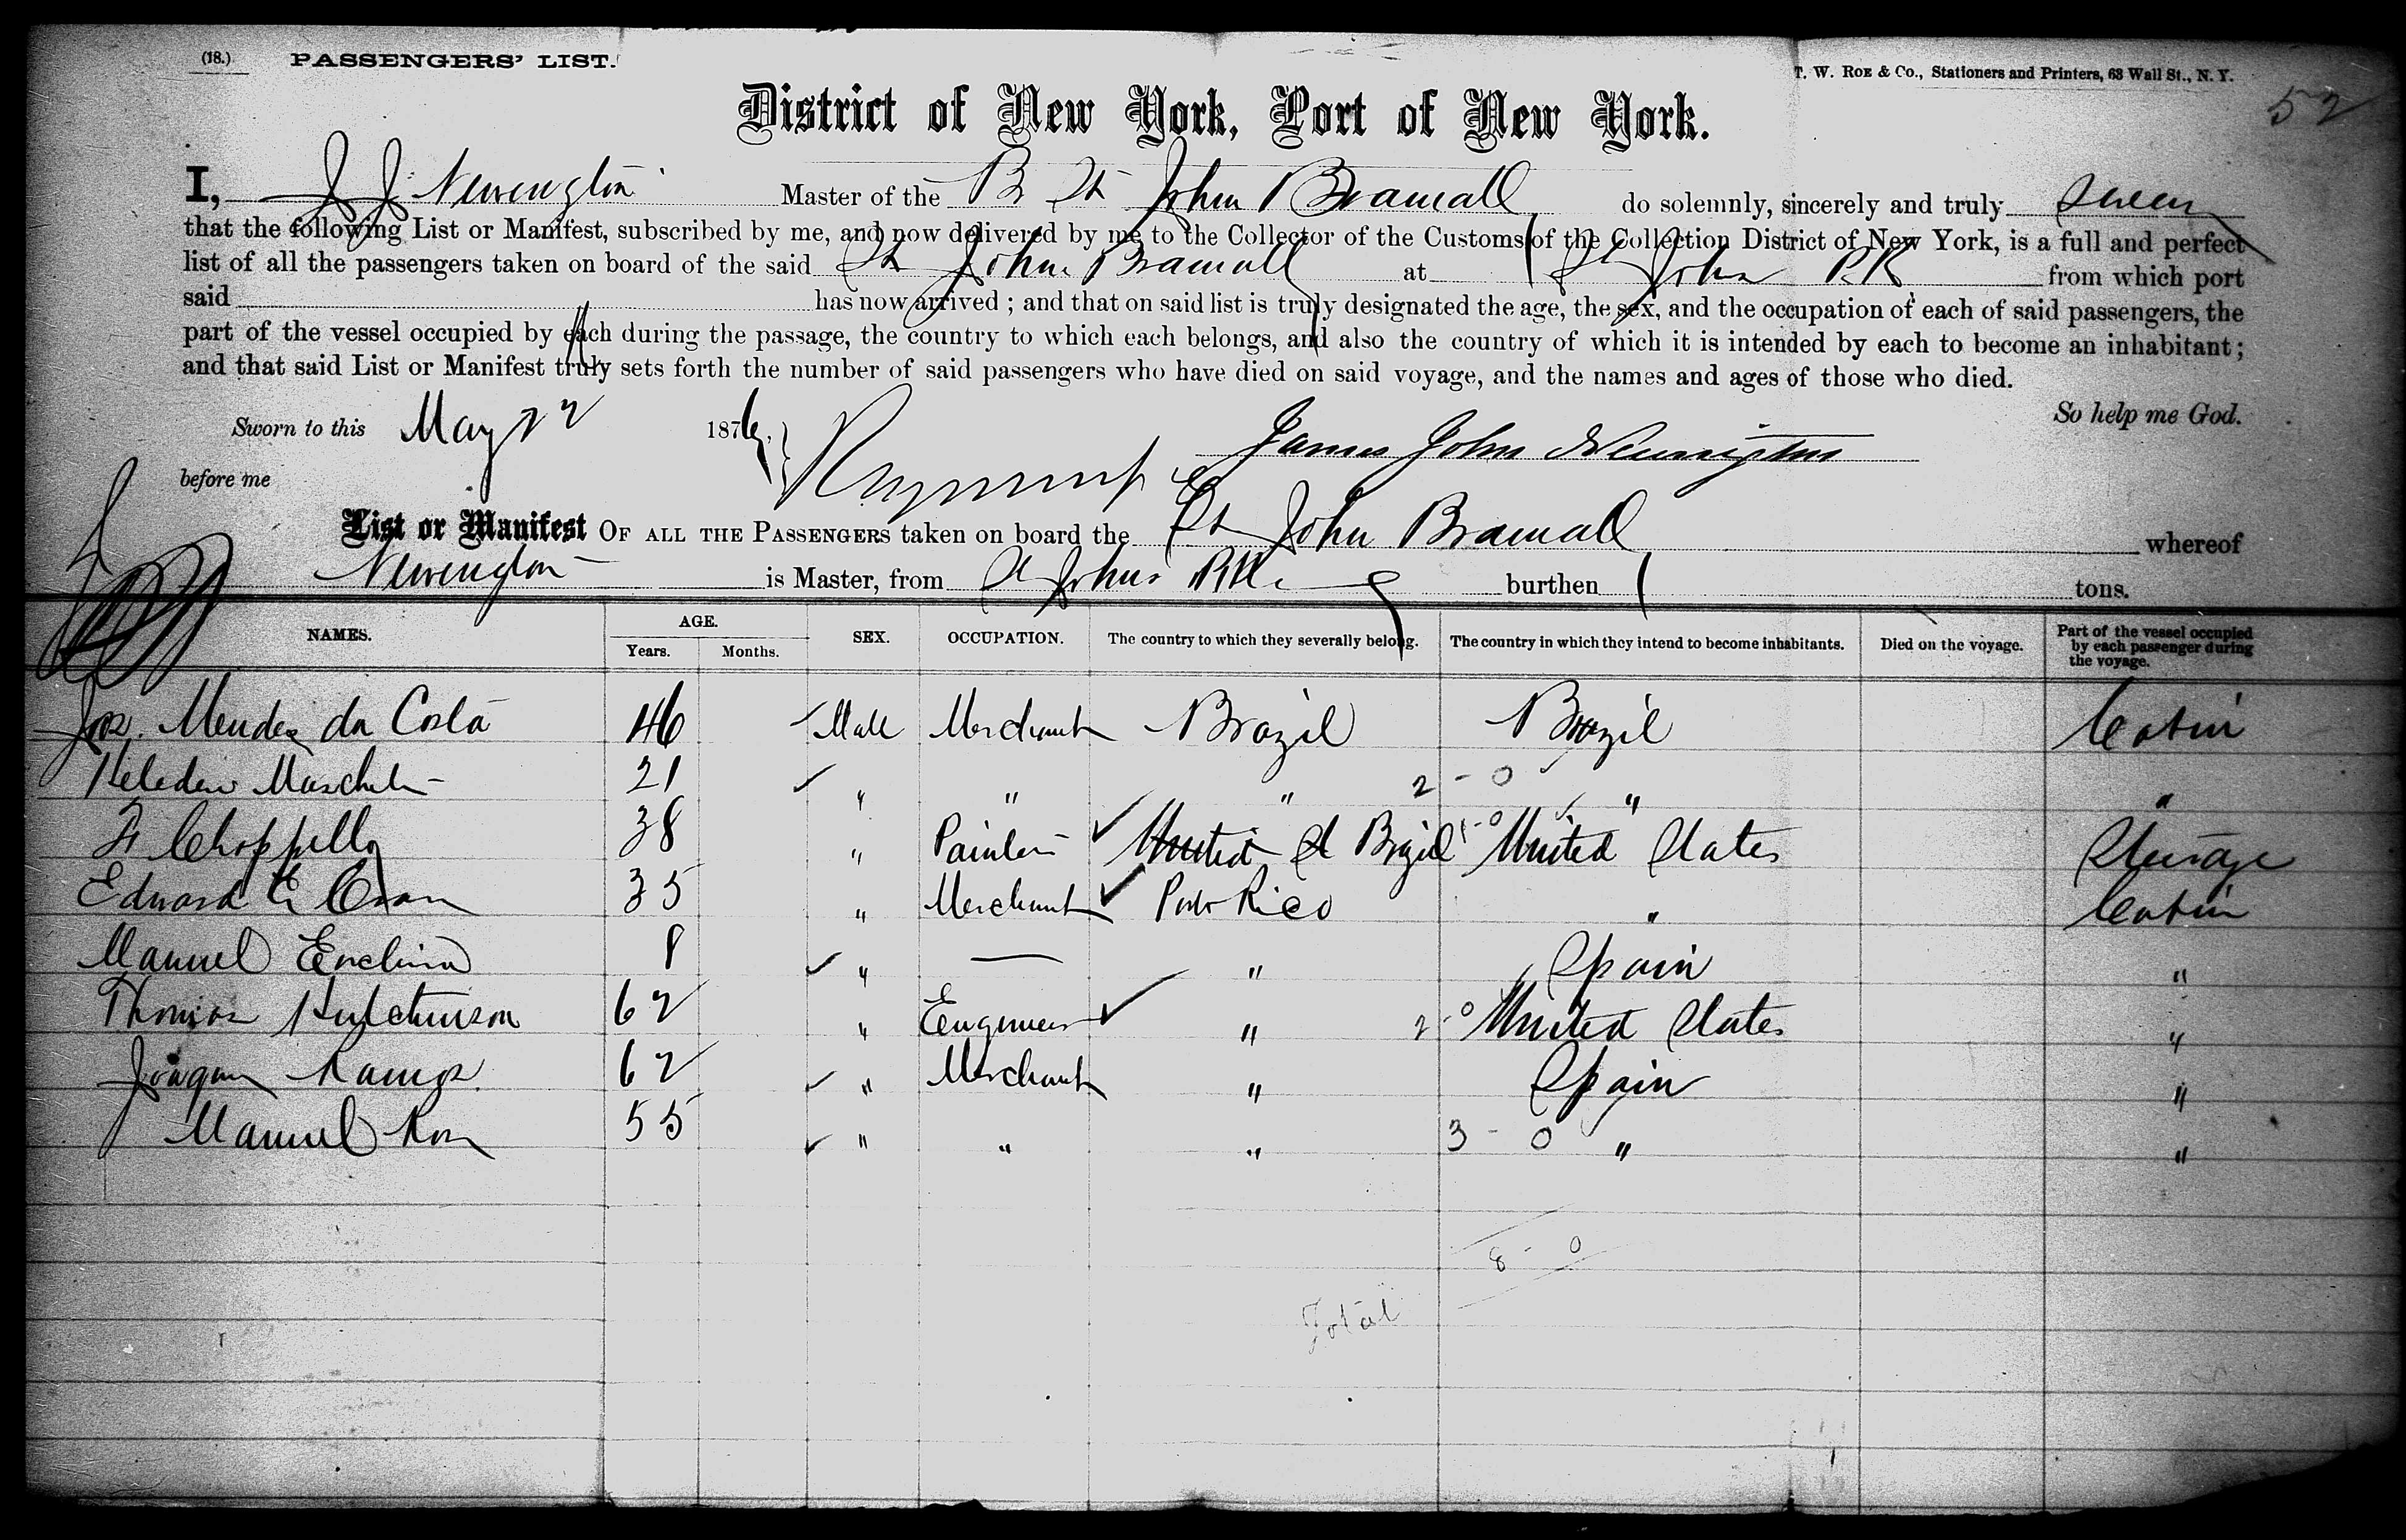 (18.) PASSENGERS' LIST.
T. W. ROE & Co., Stationers and Printers, 63 Wall St., N. Y.
52
District of New York, Port of New York.
I, J J Newington Master of the B St John Bramall do solemnly, sincerely and truly swear
that the following List or Manifest, subscribed by me, and now delivered by me to the Collector of the Customs of the Collection District of New York, is a full and perfect
list of all the passengers taken on board of the said St John Bramall at St John P.R from which port
said has now arrived; and that on said list is truly designated the age, the sex, and the occupation of each of said passengers, the
part of the vessel occupied by each during the passage, the country to which each belongs, and also the country of which it is intended by each to become an inhabitant;
and that said List or Manifest truly sets forth the number of said passengers who have died on said voyage, and the names and ages of those who died.
So help me God.
Sworn to this May 22 1876,
James John Newington
before me
List or Manifest OF ALL THE PASSENGERS taken on board the St John Bramall whereof
Newington is Master, from St Johns burthen tons.
NAMES. AGE. Years. Months. SEX. OCCUPATION. The country to which they severally belong. The country in which they intend to become inhabitants. Died on the voyage. Part of the vessel occupied by each passenger during the voyage.
Jos. Mendes da Costa 46 Male Merchant Brazil Brazil Cabin
21 " " " 2 - 0 " "
38 " Painter United St Brazil 1-0 United States Steerage
Edward 35 " Merchant Porto Rico " Cabin
Manuel Enclina 8 " — " Spain "
Thomas Hutchinson 62 " Engineer " 2-0 United States "
Joaquin Ramos 62 " Merchant " Spain "
Manuel 55 " " " 3 - 0 " "
8 - 0
Total